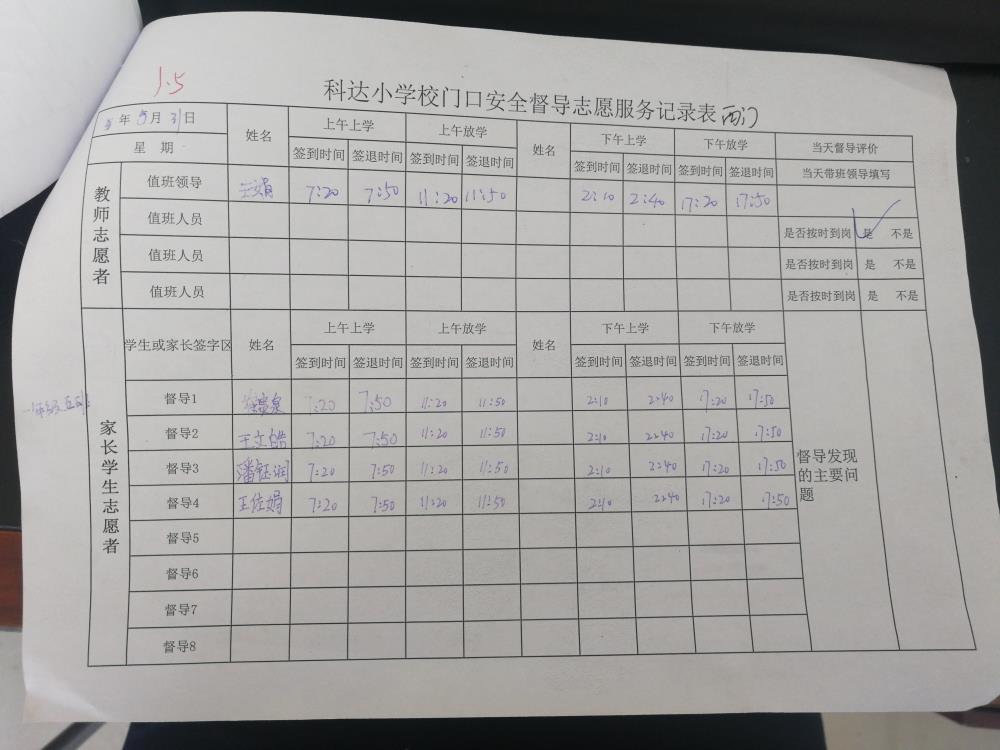 1.5
科达小学校门口安全督导志愿服务记录表 西门
年 5月 31日 姓名 上午上学 上午放学 姓名 下午上学 下午放学 当天督导评价
星 期 签到时间 签退时间 签到时间 签退时间 签到时间 签退时间 签到时间 签退时间 当天带班领导填写
教师志愿者
值班领导 7:20 7:50 11:20 11:50 2:10 2:40 17:20 17:50
值班人员 是否按时到岗 是 不是
值班人员 是否按时到岗 是 不是
值班人员 是否按时到岗 是 不是
学生或家长签字区 姓名 上午上学 上午放学 姓名 下午上学 下午放学
签到时间 签退时间 签到时间 签退时间 签到时间 签退时间 签到时间 签退时间
家长学生志愿者
督导1 7:20 7:50 11:20 11:50 2:10 2:40 17:20 17:50
督导2 王文皓 7:20 7:50 11:20 11:50 2:10 2:40 17:20 17:50
督导3 潘钰润 7:20 7:50 11:20 11:50 2:10 2:40 17:20 17:50
督导4 王佐娟 7:20 7:50 11:20 11:50 2:10 2:40 17:20 17:50
督导5
督导6
督导7
督导8
督导发现
的主要问
题